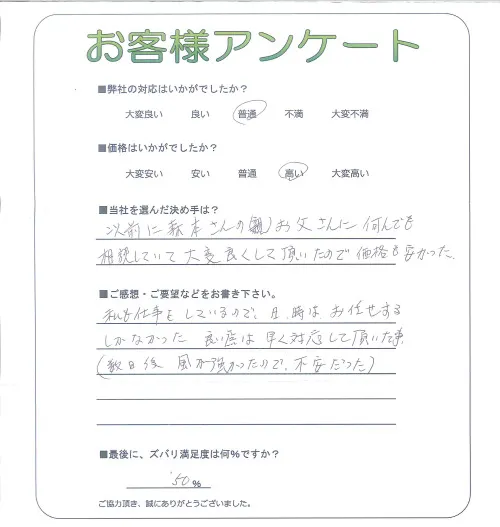 お客様アンケート
■弊社の対応はいかがでしたか？
大変良い 良い 普通 不満 大変不満
■価格はいかがでしたか？
大変安い 安い 普通 高い 大変高い
■当社を選んだ決め手は？
以前に 森本さんの お父さんに 何んでも
相談していて 大変良くして頂いたので 価格も安かった
■ご感想・ご要望などをお書き下さい。
私も仕事をしているので、 時は お任せする
しかなかった 良い点は 早く対応して頂いた事
(数日後 風が強かったので、不安だった)
■最後に、ズバリ満足度は何%ですか？
50 %
ご協力頂き、誠にありがとうございました。